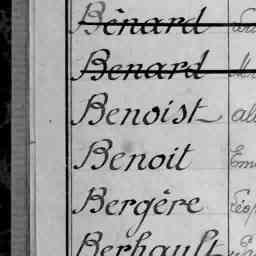 Bénard
Benard
Benoist
Benoit
Bergère
Berhault